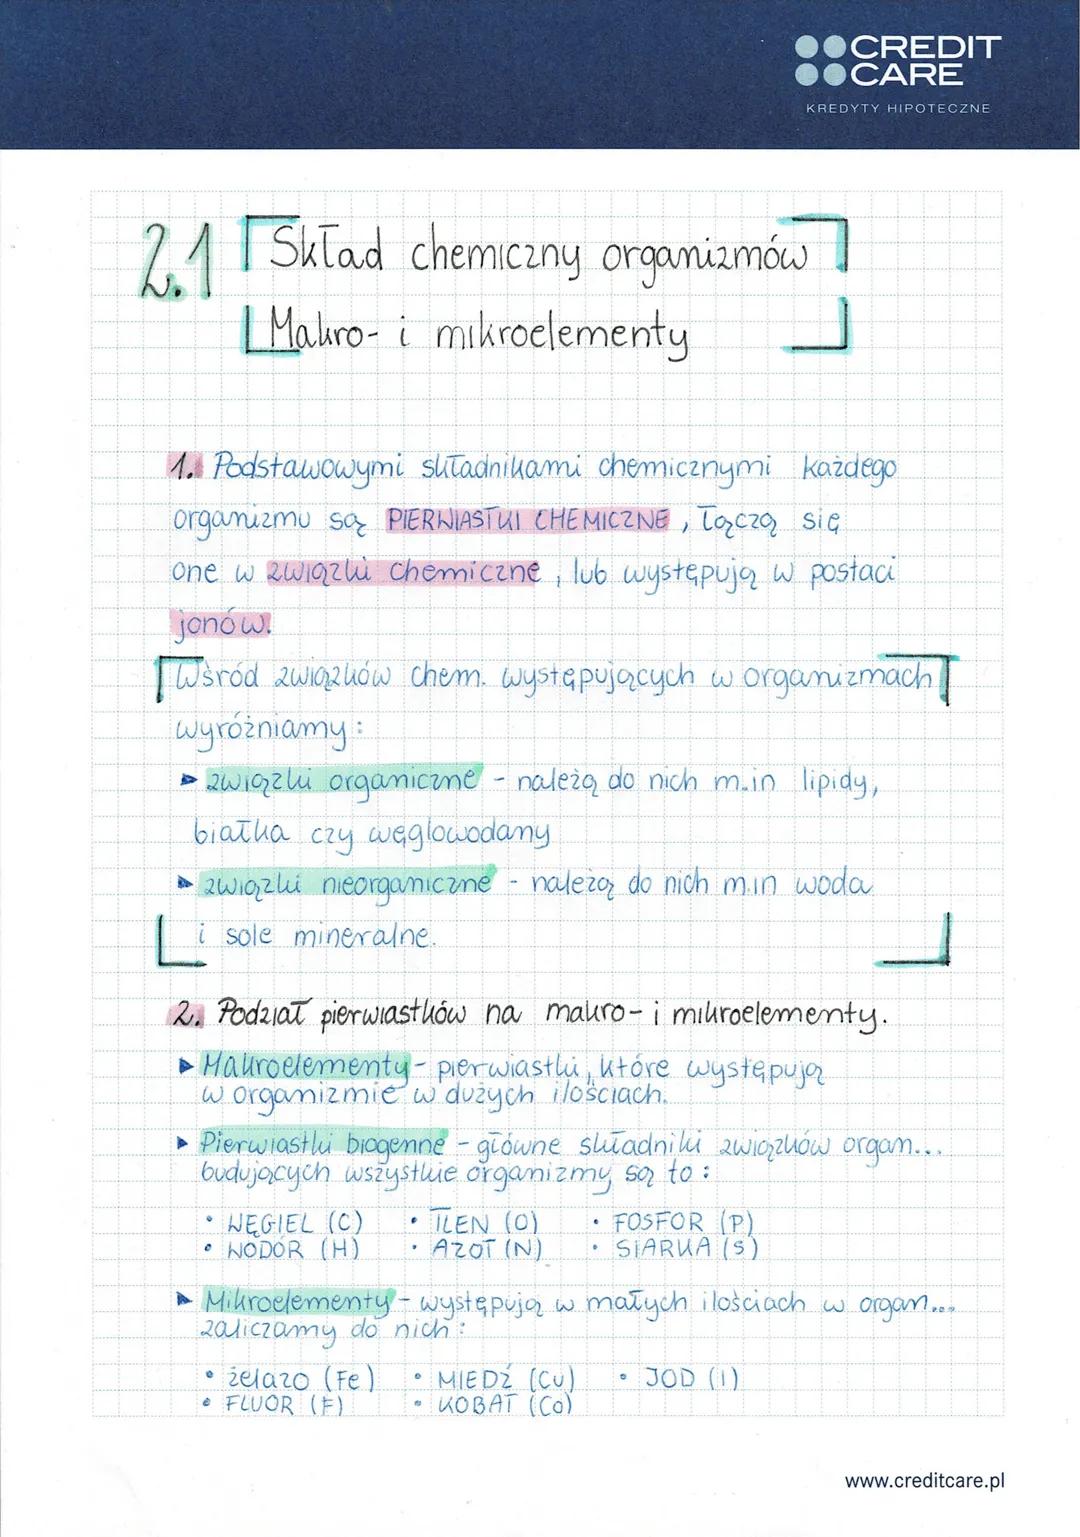 CREDIT
CARE
KREDYTY HIPOTECZNE
2.1 Skład chemiczny organizmów
Makro- i mikroelementy
1. Podstawowymi składnikami chemicznymi każdego
organizmu są PIERWIASTKI CHEMICZNE, łączą się
one w związki chemiczne, lub występują w postaci
jonów.
Wśród związków chem. występujących w organizmach
wyróżniamy:
▸ związki organiczne - należą do nich m.in lipidy,
białka czy węglowodany
▸ związki nieorganiczne - należą do nich m.in woda
i sole mineralne.
2. Podział pierwiastków na makro- i mikroelementy.
▸ Makroelementy - pierwiastki, które występują
w organizmie w dużych ilościach.
▸ Pierwiastki biogenne - główne składniki związków organ...
budujących wszystkie organizmy są to:
• WĘGIEL (C) • TLEN (O) • FOSFOR (P)
• WODÓR (H) • AZOT (N) • SIARKA (S)
▸ Mikroelementy - występują w małych ilościach w organ...
zaliczamy do nich:
• żelazo (Fe) • MIEDŹ (Cu) • JOD (I)
• FLUOR (F) • KOBAT (Co)
www.creditcare.pl